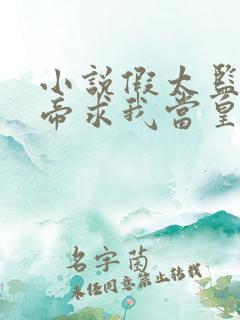 小说假太监
帝求我当皇
名字菌
未经同意禁止转载